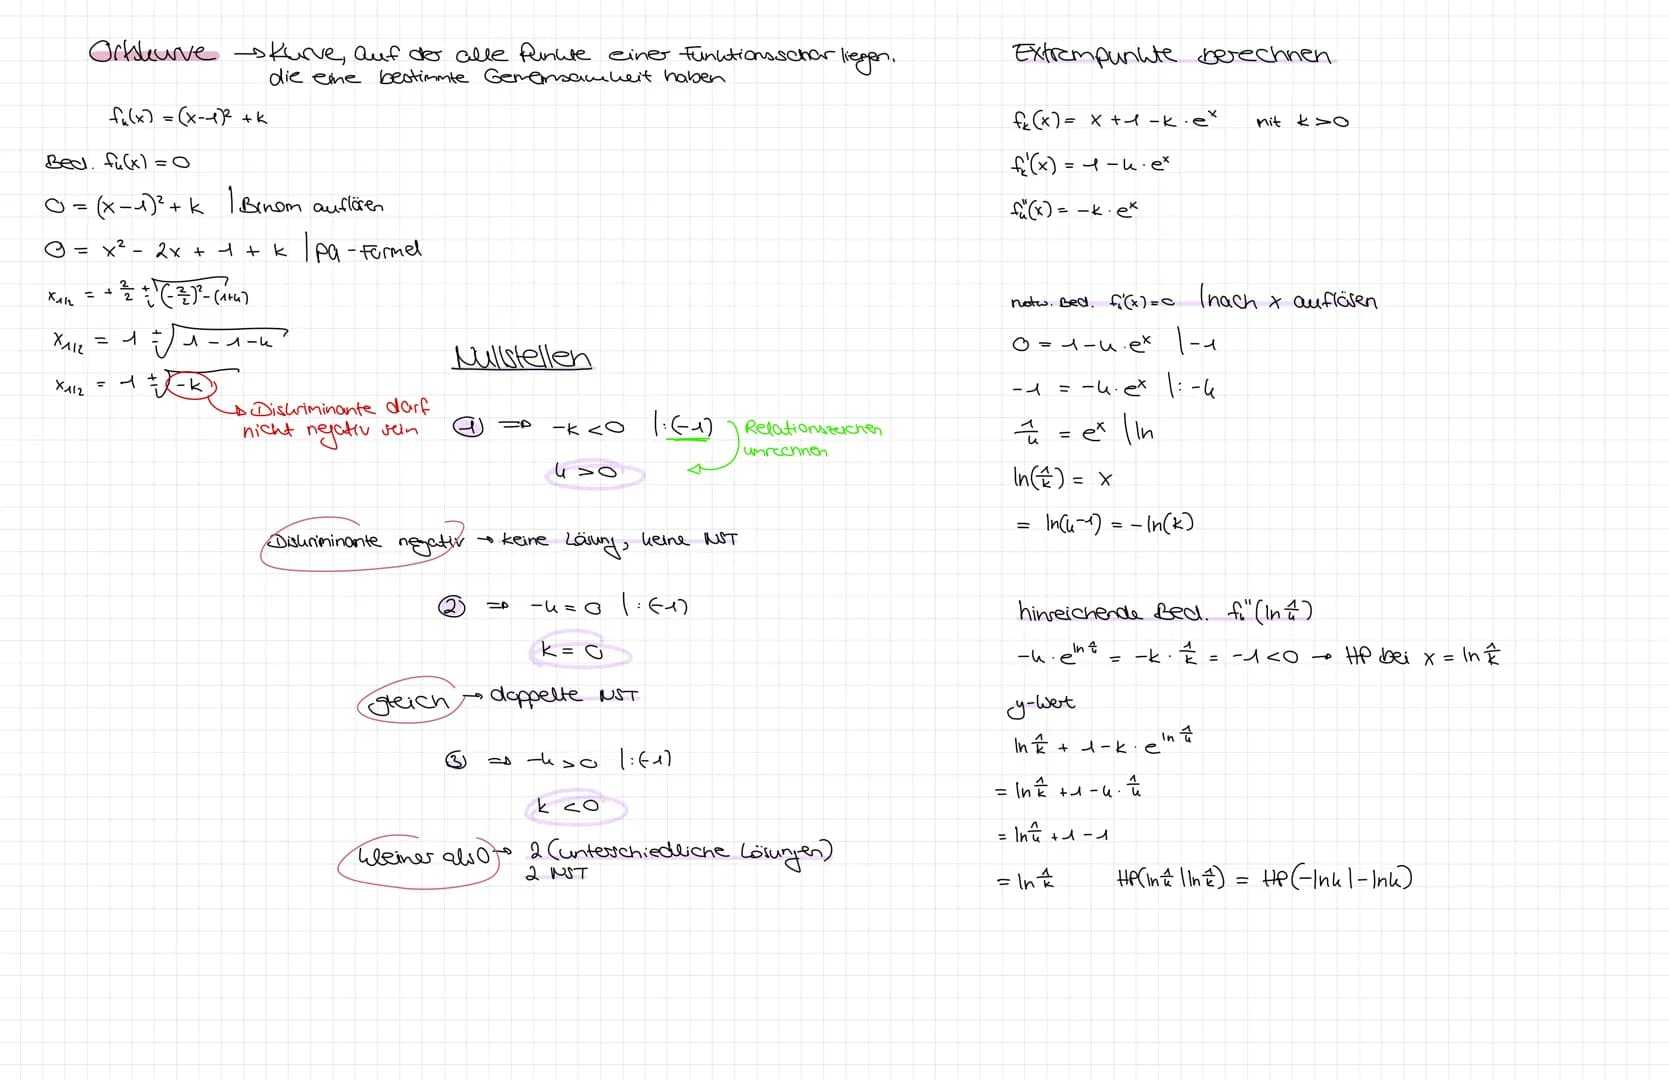 Ortskurve → Kurve, auf der alle Punkte einer Funktionsschar liegen,
die eine bestimmte Gemeinsamkeit haben
fₖ(x) = (x-1)² + k
Bed. fₖ(x) = 0
0 = (x-1)² + k | Binom auflösen
0 = x² - 2x + 1 + k | pq-Formel
x₁/₂ = + 2/2 ± √((-2/2)² - (1+k))
x₁/₂ = 1 ± √(1 - 1 - k)
x₁/₂ = 1 ± √(-k)
→ Diskriminante darf
nicht negativ sein
Nullstellen
① ⇒ -k < 0 | : (-1)
Relationszeichen
k > 0
Diskriminante negativ → keine Lösung, keine NST
② ⇒ -k = 0 | : (-1)
k = 0
gleich → doppelte NST
③ ⇒ -k > 0 | : (-1)
k < 0
kleiner als 0 → 2 (unterschiedliche Lösungen)
2 NST
Extrempunkte berechnen
fₖ(x) = x + 1 - k · eˣ mit k > 0
fₖ'(x) = 1 - k · eˣ
fₖ''(x) = -k · eˣ
notw. Bed. fₖ'(x) = 0 | nach x auflösen
0 = 1 - k · eˣ | -1
-1 = -k · eˣ | : -k
1/k = eˣ | ln
ln(1/k) = x
= ln(k⁻¹) = -ln(k)
hinreichende Bed. fₖ''(ln 1/k)
-k · e^(ln 1/k) = -k · 1/k = -1 < 0 → HP bei x = ln 1/k
y-Wert
ln 1/k + 1 - k · e^(ln 1/k)
= ln 1/k + 1 - k · 1/k
= ln 1/k + 1 - 1
= ln 1/k HP(ln 1/k | ln 1/k) = HP(-ln k | -ln k)